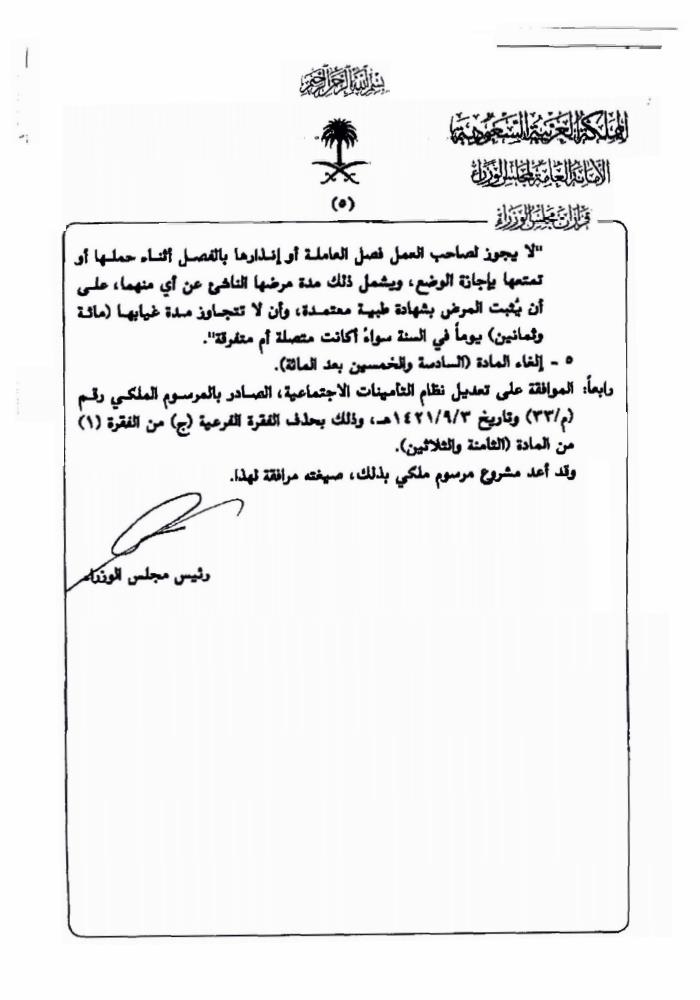 بسم الله الرحمن الرحيم
المملكة العربية السعودية
الأمانة العامة لمجلس الوزراء
(٥)
قرارات مجلس الوزراء
"لا يجوز لصاحب العمل فصل العاملة أو إنذارها بالفصل أثناء حملها أو
تمتعها بإجازة الوضع، ويشمل ذلك مدة مرضها الناشئ عن أي منهما، على
أن يُثبت المرض بشهادة طبية معتمدة، وأن لا تتجاوز مدة غيابها (مائة
وثمانين) يوماً في السنة سواءً أكانت متصلة أم متفرقة".
٥ - إلغاء المادة (السادسة والخمسين بعد المائة).
رابعاً: الموافقة على تعديل نظام التأمينات الاجتماعية، الصادر بالمرسوم الملكي رقم
(م/٣٣) وتاريخ ١٤٢١/٩/٣هـ، وذلك بحذف الفقرة الفرعية (ج) من الفقرة (١)
من المادة (الثامنة والثلاثين).
وقد أعد مشروع مرسوم ملكي بذلك، صيغته مرافقة لهذا.
رئيس مجلس الوزراء